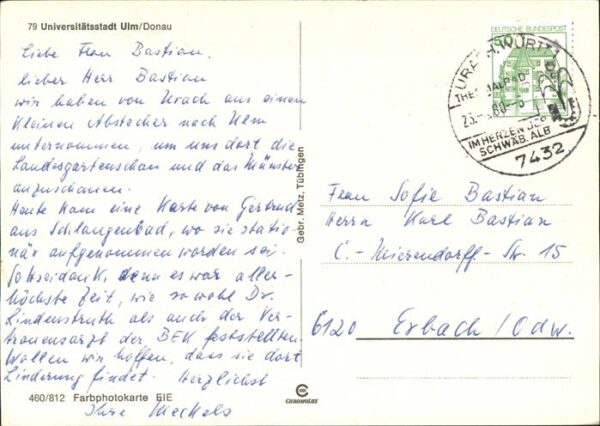 79 Universitätsstadt Ulm/Donau
Liebe Frau Bastian,
lieber Herr Bastian
wir haben von Urach aus einen
kleinen Abstecher nach Ulm
unternommen, um uns dort die
Landesgartenschau und das Münster
anzuschauen.
Heute kam eine Karte von Gertrud
aus Schlangenbad, wo sie statio-
när aufgenommen worden sei.
Gottseidank, denn es war aller-
höchste Zeit, wie sowohl Dr.
Lindenstruth als auch der Ver-
trauensarzt der BEK feststellten.
Wollen wir hoffen, dass sie dort
Linderung findet. Herzlichst
Ihre
460/812 Farbphotokarte EIE
Gebr. Metz, Tübingen
CHROMOLUX
DEUTSCHE BUNDESPOST
50
URACH, WÜRTT
IM HERZEN DER
SCHWÄB. ALB
7432
Frau Sofie Bastian
Herrn Karl Bastian
C.-Mierendorff-Str. 15
6120 Erbach/Odw.